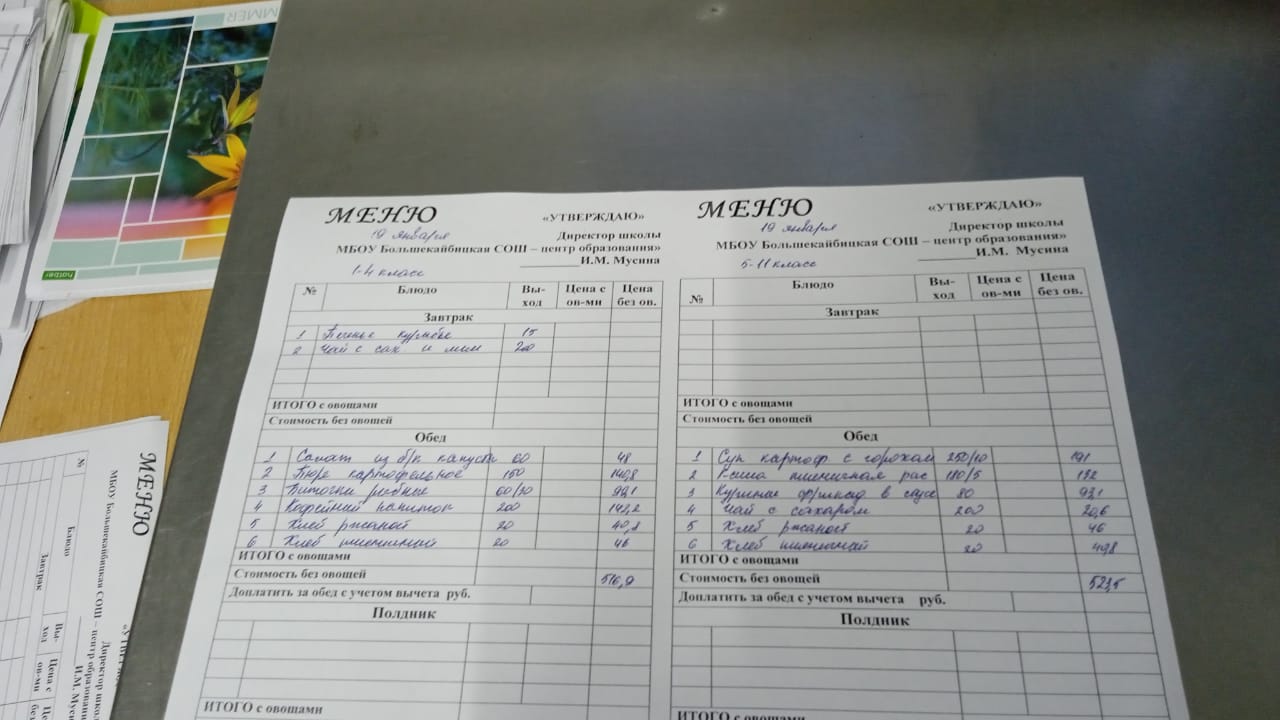 МЕНЮ
«УТВЕРЖДАЮ»
19 января
Директор школы
МБОУ Большекайбицкая СОШ – центр образования»
И.М. Мусина
1-4 класс
№ Блюдо Вы-ход Цена с ов-ми Цена без ов.
Завтрак
1 Печенье 15
2 Чай с сах и мол 200
ИТОГО с овощами
Стоимость без овощей
Обед
1 Салат из б/к капуст 60 48
2 Пюре картофельное 150 140,8
3 Биточки рыбные 60/30 99,1
4 Кофейный напиток 200 142,2
5 Хлеб ржаной 20 40,8
6 Хлеб пшеничный 20 46
ИТОГО с овощами
Стоимость без овощей 516,9
Доплатить за обед с учетом вычета руб.
Полдник
ИТОГО с овощами
МЕНЮ
«УТВЕРЖДАЮ»
19 января
Директор школы
МБОУ Большекайбицкая СОШ – центр образования»
И.М. Мусина
5-11 класс
№ Блюдо Вы-ход Цена с ов-ми Цена без ов.
Завтрак
ИТОГО с овощами
Стоимость без овощей
Обед
1 Суп картоф с горохом 250/10 191
2 пшеничная рас 180/5 132
3 80 93,1
4 Чай с сахаром 200 20,6
5 Хлеб ржаной 20 46
6 Хлеб пшеничный 20 40,8
ИТОГО с овощами
Стоимость без овощей 523,5
Доплатить за обед с учетом вычета руб.
Полдник
ИТОГО с овощами
hatber
МЕНЮ
МБОУ Большекайбицкая СОШ – центр образования
Директор
И.М.
№ Блюдо Вы-ход Цена с ов-ми
Завтрак